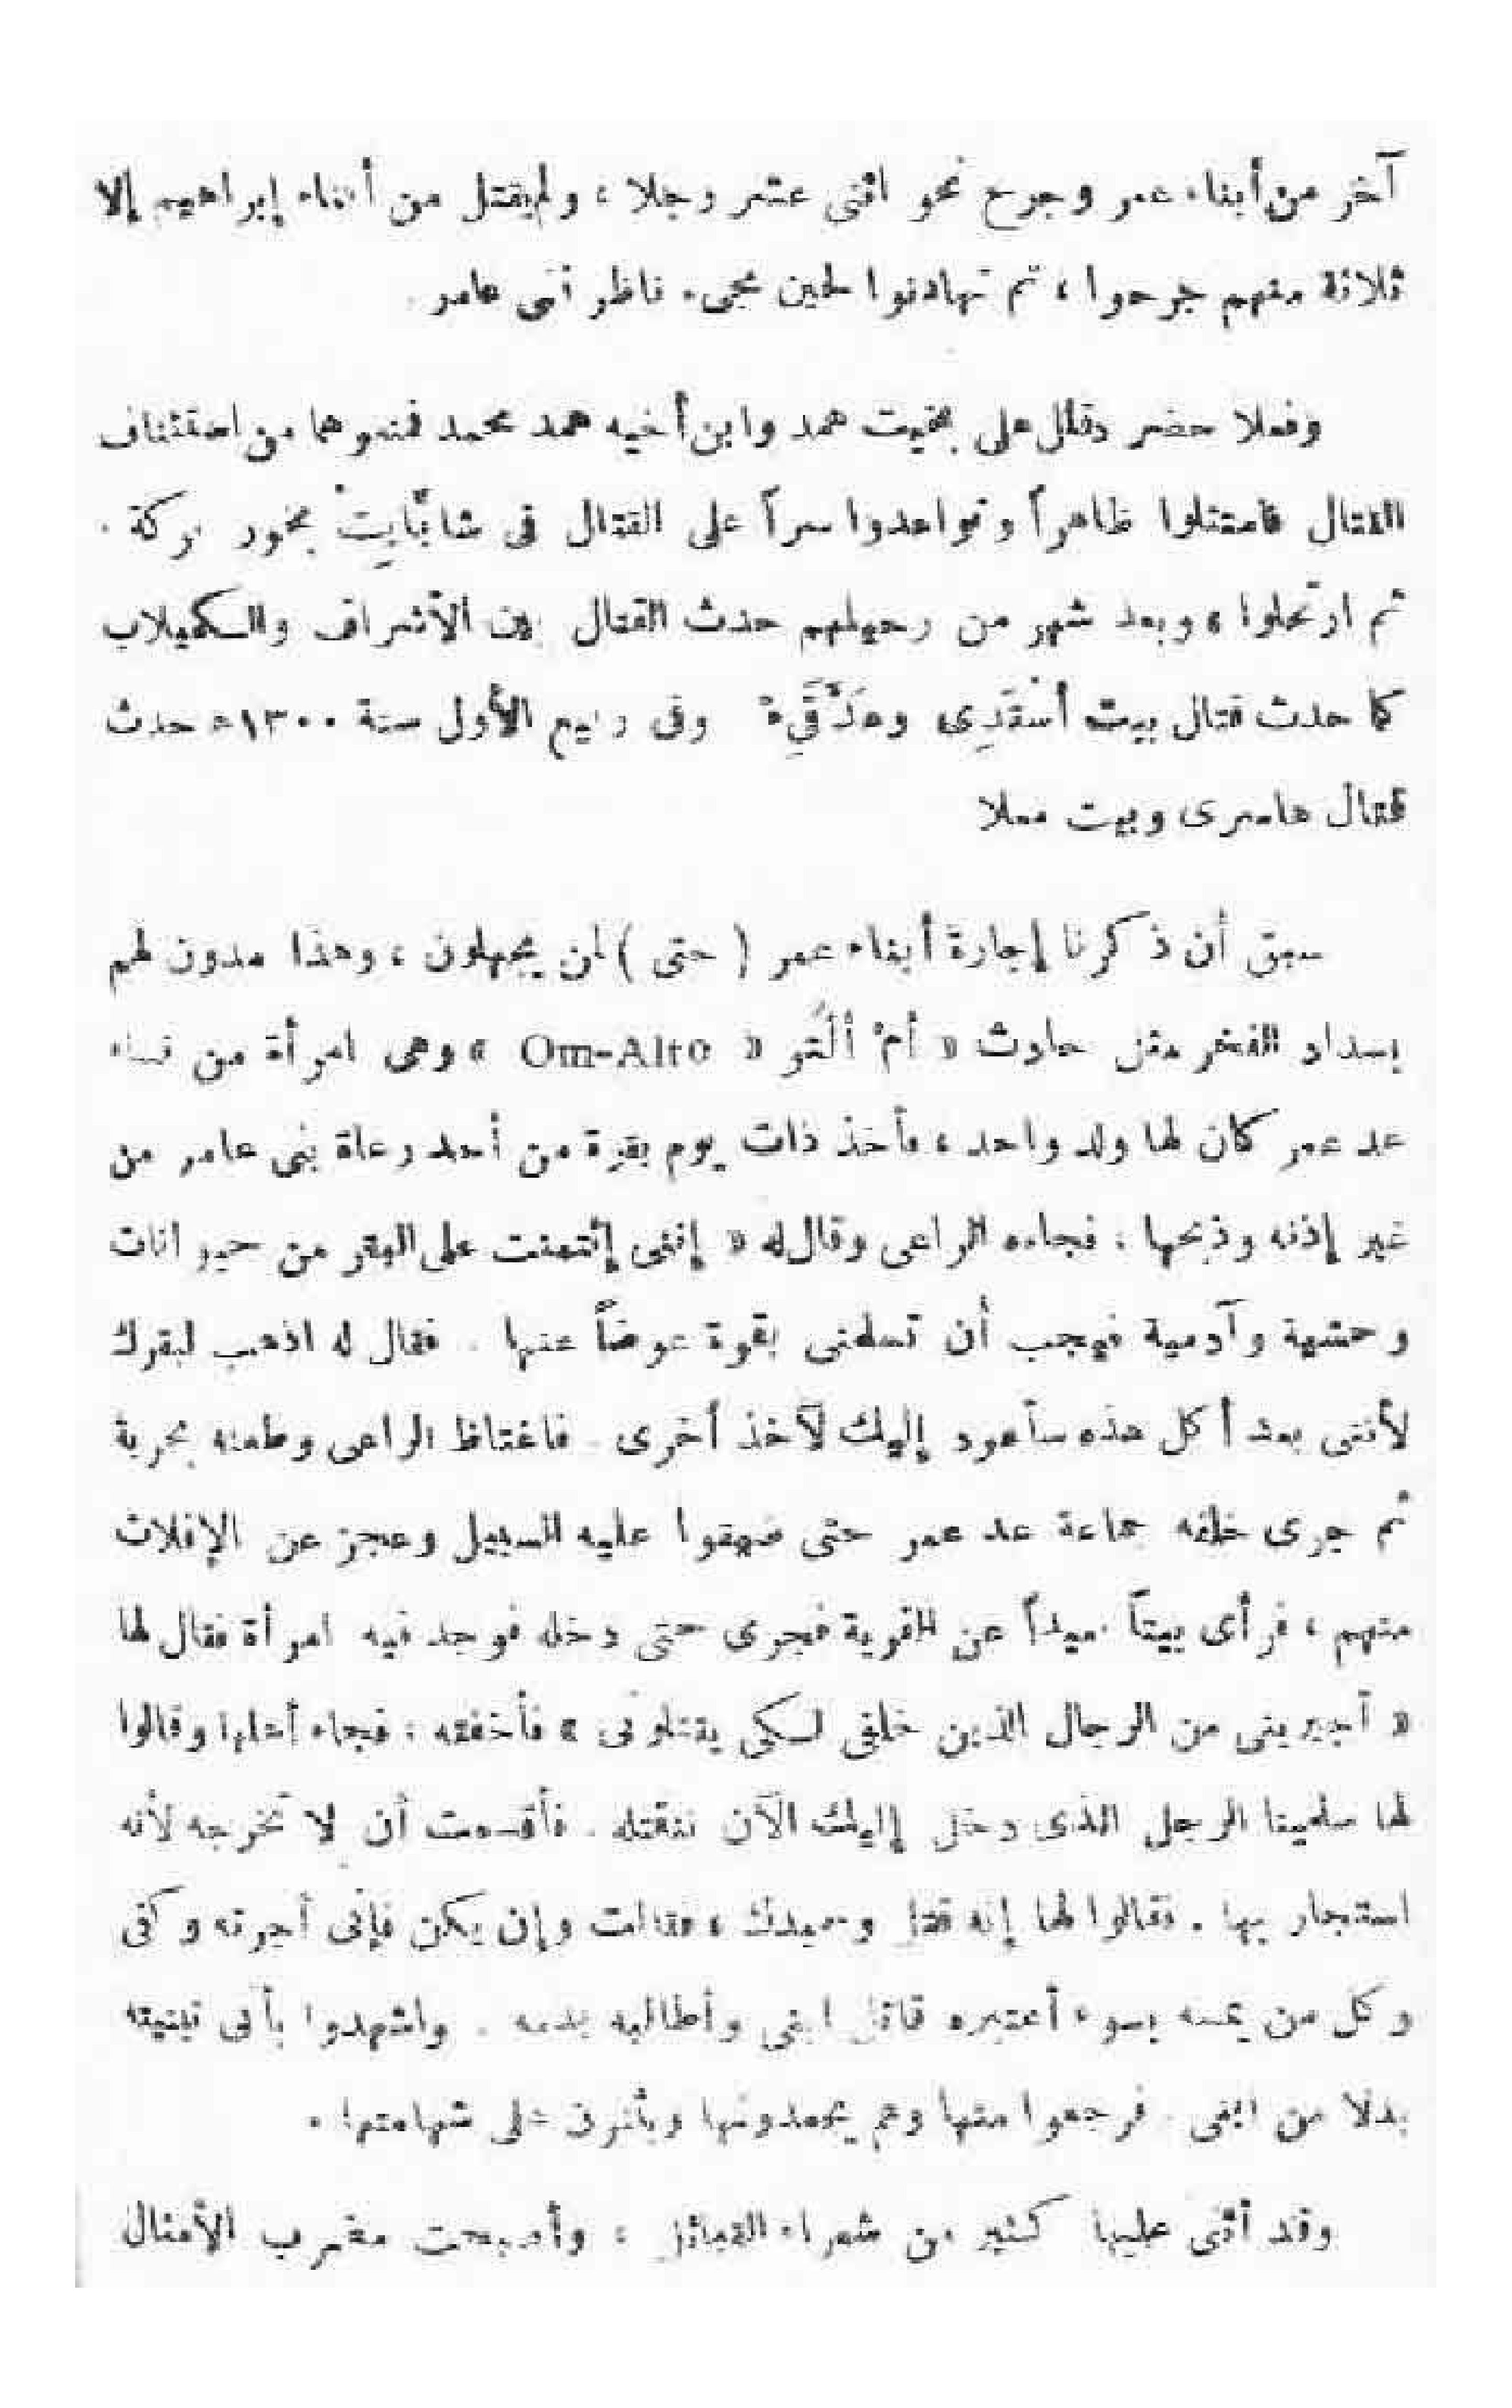 آخر من أبناء عمر وجرح نحو اثنى عشر رجلا ، ولم يقتل من أبناء إبراهيم إلا
ثلاثة منهم جرحوا ، ثم تهادنوا لحين مجىء ناظر بنى عامر .
وفعلا حضر دقلل على بخيت حمد وابن أخيه حمد محمد فمنعوهما من استئناف
القتال فامتثلوا ظاهراً وتواعدوا سراً على القتال فى بخور بركة .
ثم ارتحلوا ، وبعد شهر من رحيلهم حدث القتال بين الأشراف والسكميلاب
كما حدث قتال بيت أسْقَدِى وفى ربيع الأول سنة ١٣٠٠ه حدث
قتال هاسرى وبيت معلا
سبق أن ذكرنا إجارة أبناء عمر ( حتى ) لمن يجهلون ، وهذا مدون لهم
بمداد الفخر مثل حادث « أمْ ألْتو « Om-Alto » وهى امرأة من نساء
عد عمر كان لها ولد واحد ، فأخذ ذات يوم بقرة من أحد رعاة بنى عامر من
غير إذنه وذبحها ، فجاءه الراعى وقال له « إننى إئتمنت على البقر من حيوانات
وحشية وآدمية فيجب أن تسلمنى بقرة عوضاً عنها . فقال له اذهب لبقرك
لأننى بعد أكل هذه سأعود إليك لآخذ أخرى . فاغتاظ الراعى وطعنه بحربة
ثم جرى خلفه جماعة عد عمر حتى ضيقوا عليه السبيل وعجز عن الإفلات
منهم ، فرأى بيتاً بعيداً عن القرية فجرى حتى دخله فوجد فيه امرأة فقال لها
« أجيرينى من الرجال الذين خلفى لسكى يقتلونى » فأخفته ، فجاء أهلها وقالوا
لها سلمينا الرجل الذى دخل إليك الآن لنقتله . فأقسمت أن لا تخرجه لأنه
استجار بها . فقالوا لها إنه قتل وحيدك ، فقالت وإن يكن فإنى أجرته وكفى
وكل من يمسه بسوء أعتبره قاتل ابنى وأطالبه بدمه . واشهدوا بأنى تبنيته
بدلا من ابنى . فرجعوا منها وهم يحمدونها ويثنون على شهامتها .
وقد أثنى عليها كثير من شعراء القبائل ، وأصبحت مضرب الأمثال